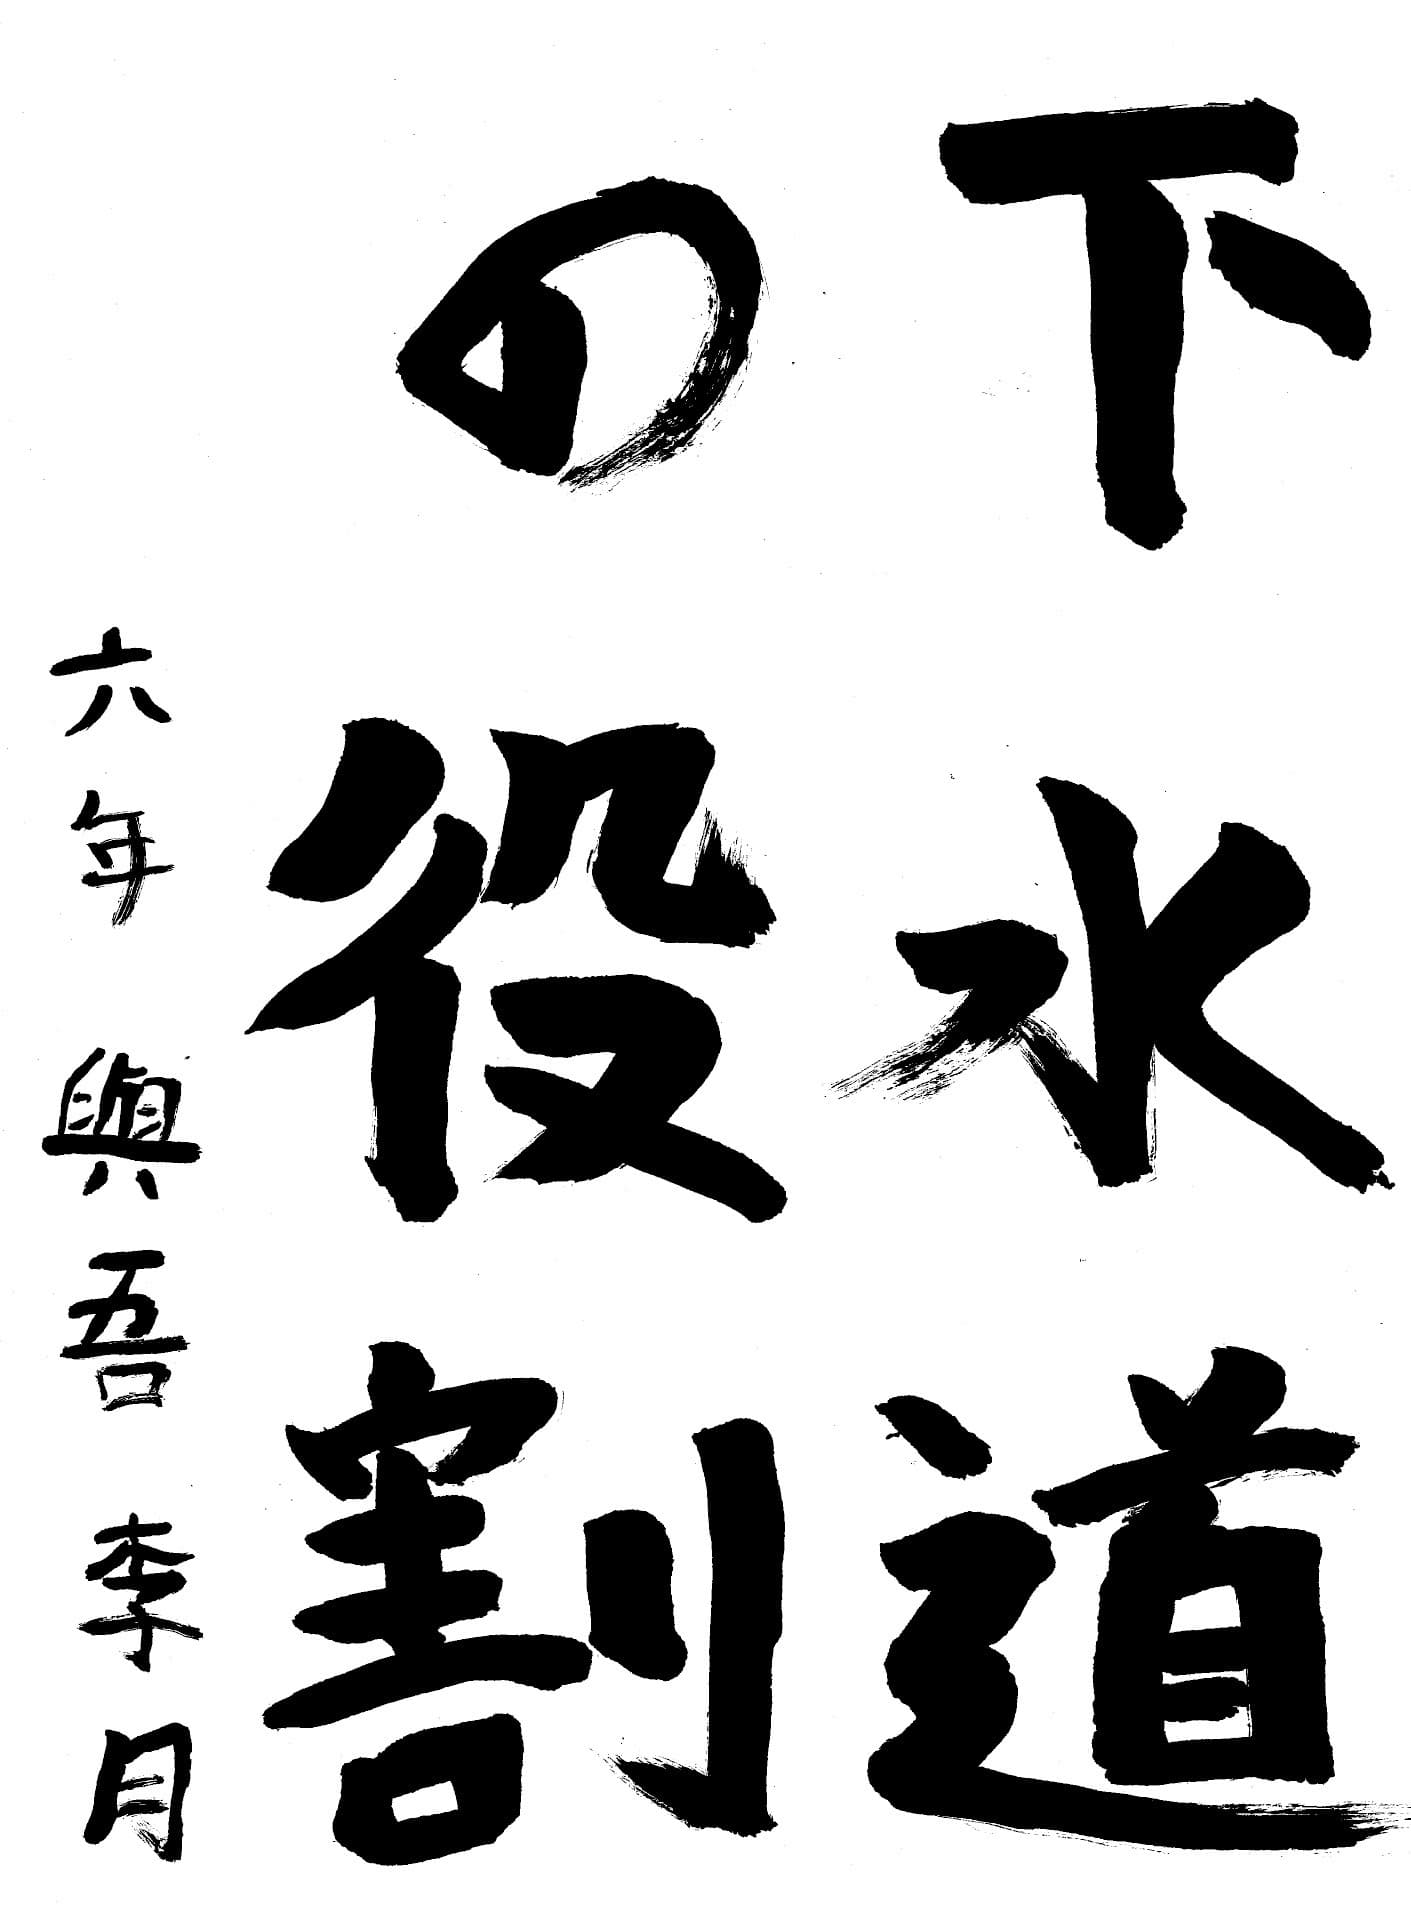 下水道
の役割
六年 與吾 李月